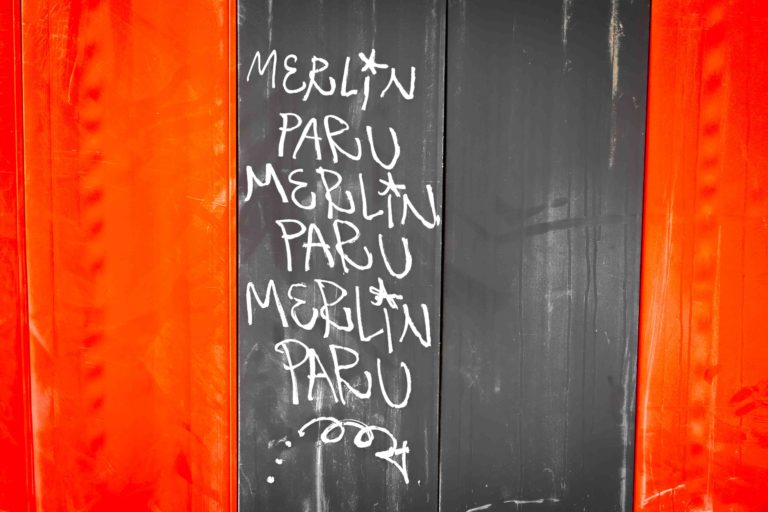 MERLIN
PARU
MERLIN
PARU
MERLIN
PARU